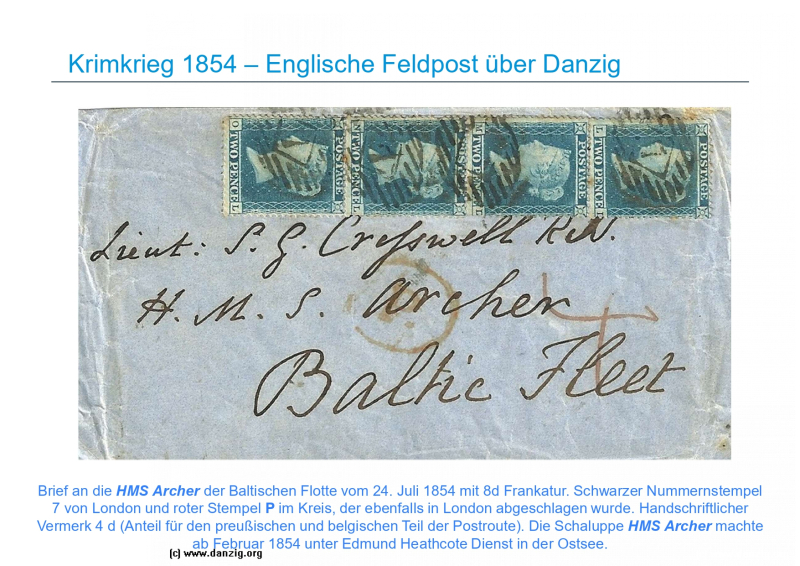 Krimkrieg 1854 – Englische Feldpost über Danzig
POSTAGE POSTAGE
TWO PENCE TWO PENCE TWO PENCE TWO PENCE
Lieut: S. G. Cresswell R.N.
H. M. S. Archer
Baltic Fleet
4
Brief an die HMS Archer der Baltischen Flotte vom 24. Juli 1854 mit 8d Frankatur. Schwarzer Nummernstempel
7 von London und roter Stempel P im Kreis, der ebenfalls in London abgeschlagen wurde. Handschriftlicher
Vermerk 4 d (Anteil für den preußischen und belgischen Teil der Postroute). Die Schaluppe HMS Archer machte
ab Februar 1854 unter Edmund Heathcote Dienst in der Ostsee.
(c) www.danzig.org